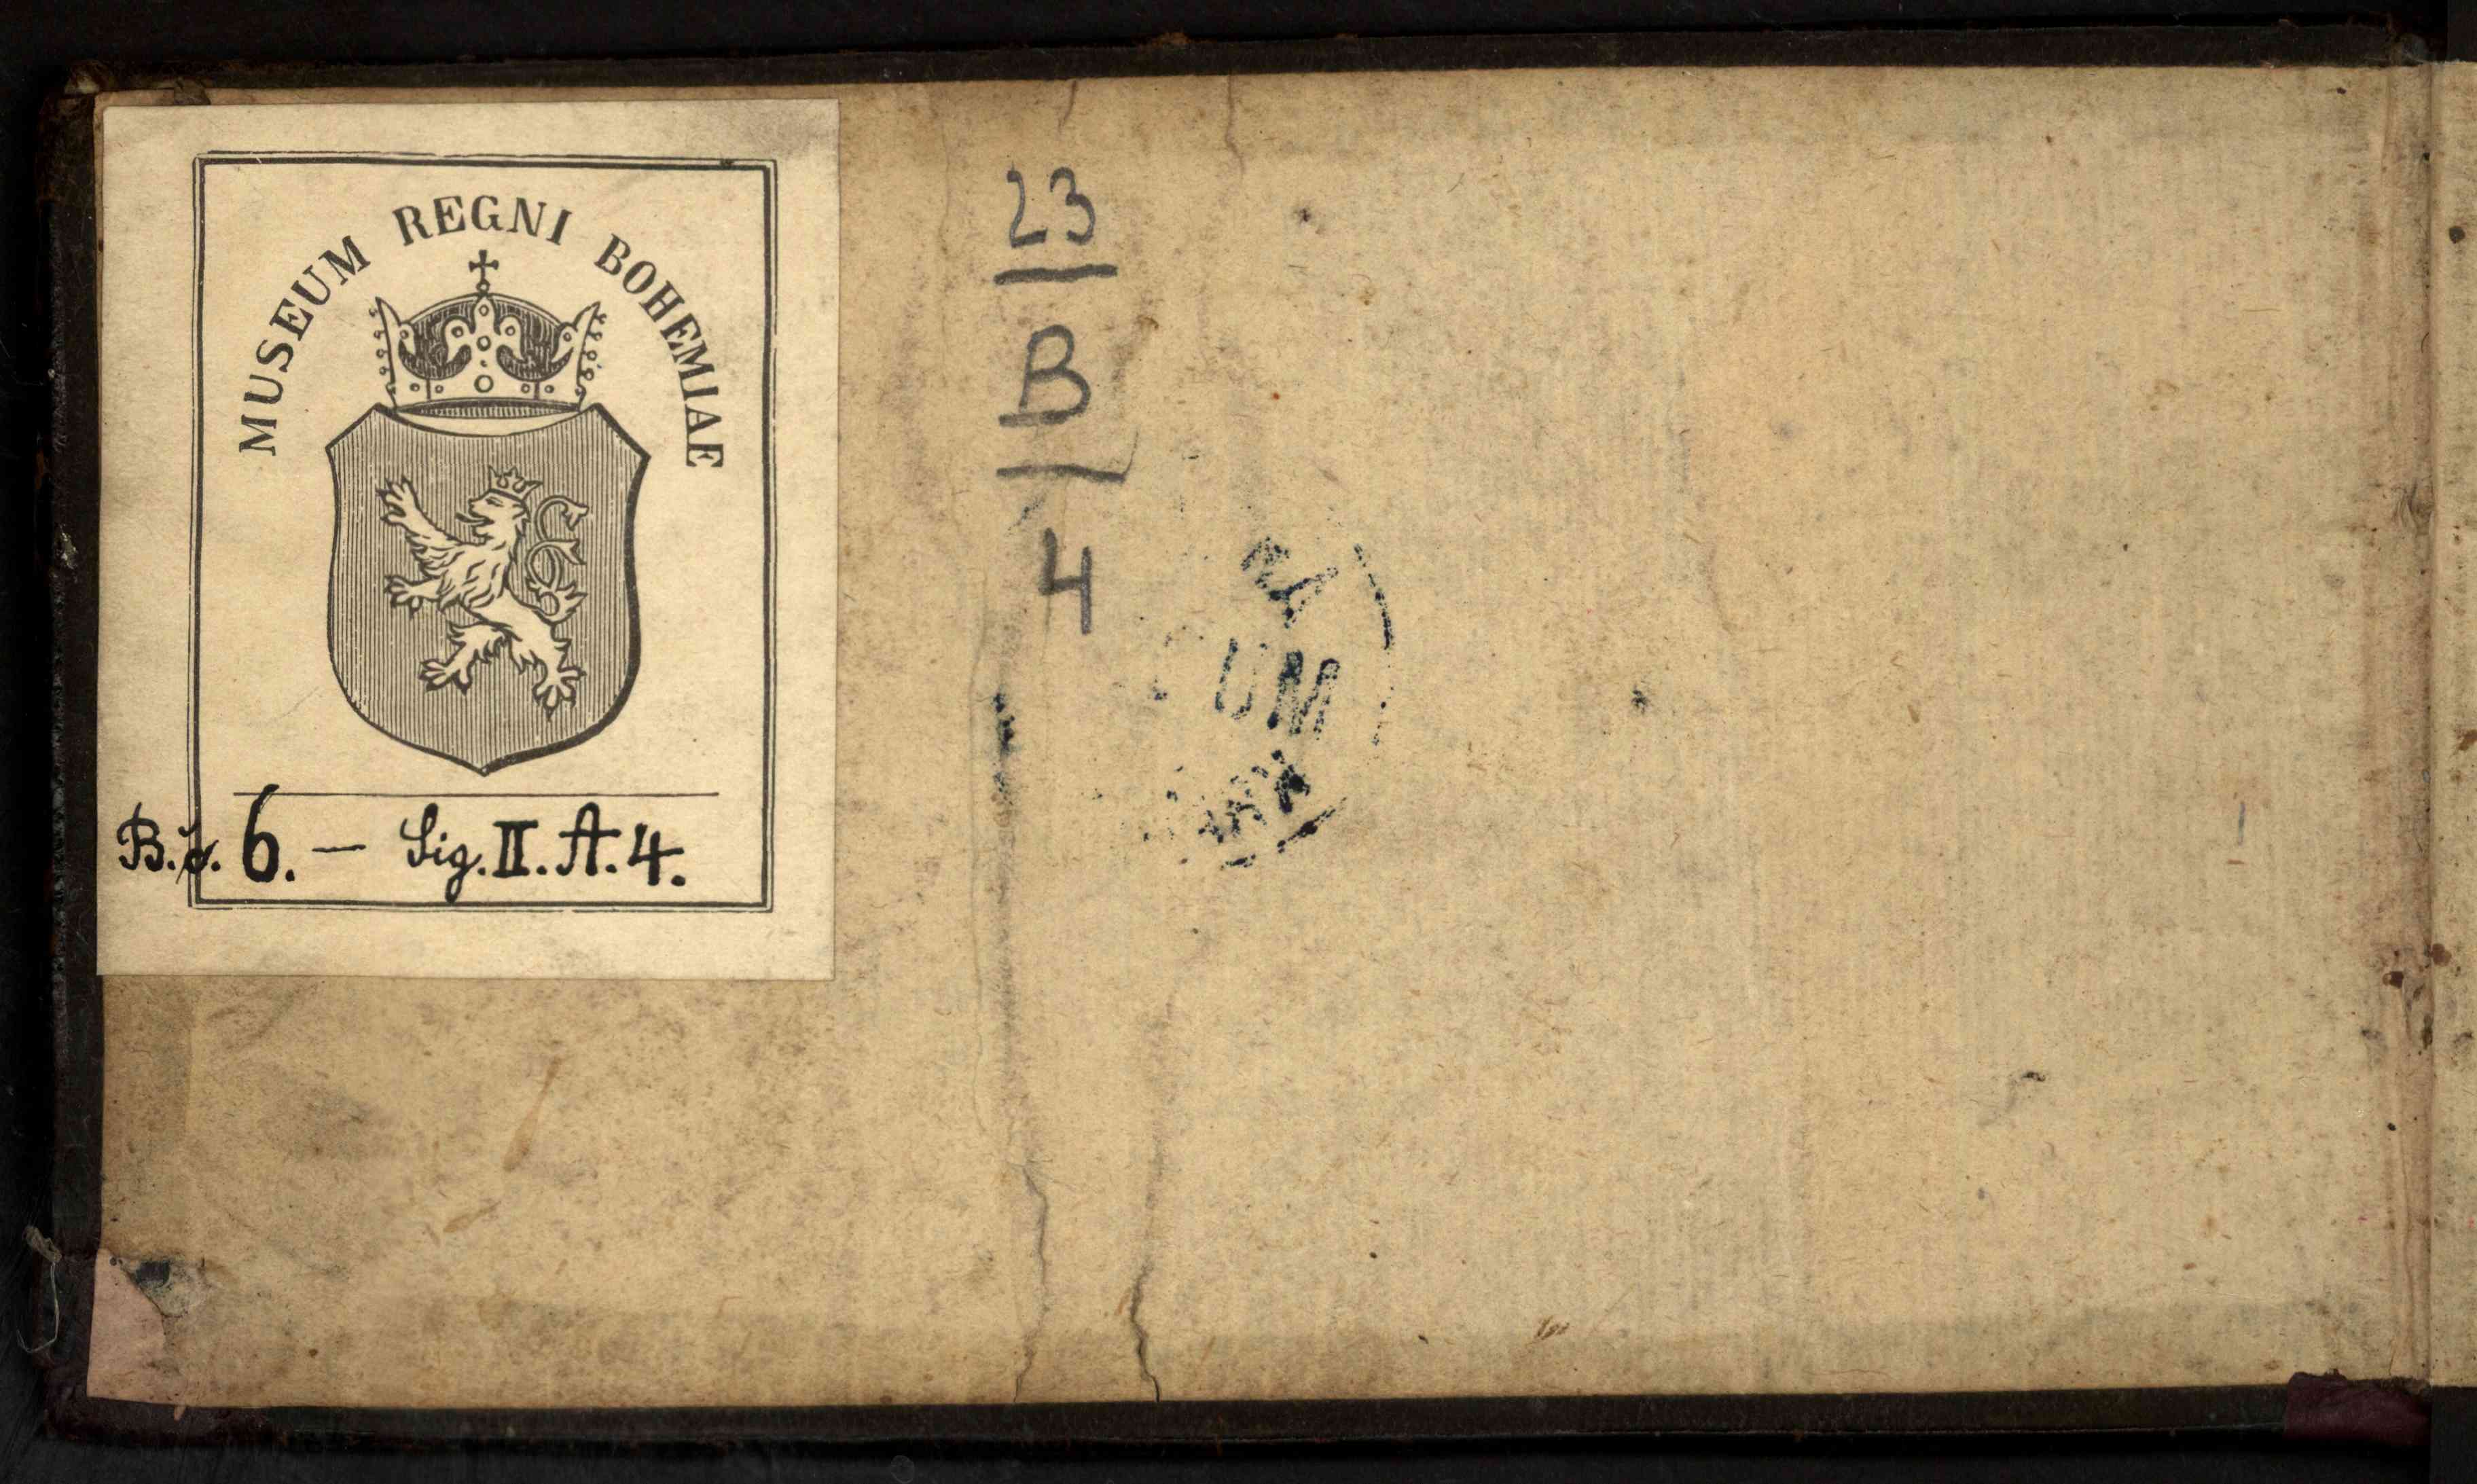 MUSEUM REGNI BOHEMIAE
6. — Sig. II. A. 4.
23
B
4
UM